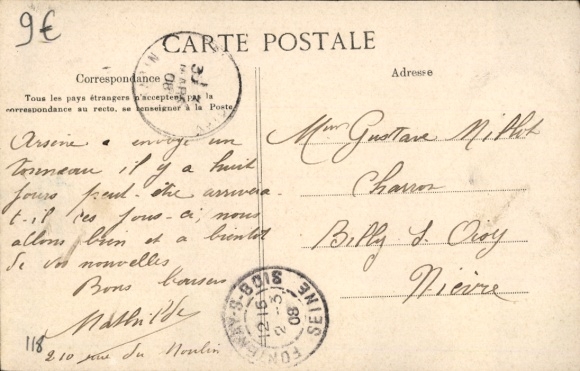 9€
CARTE POSTALE
Correspondance
Adresse
Tous les pays étrangers n'acceptent pas la
correspondance au recto, se renseigner à la Poste
Arsène a envoyé un
tonneau il y a huit
jours peut-être arrivera
t-il ces jours-ci, nous
allons bien et a bientot
de vos nouvelles
Bons baisers
Mathilde
210 rue du Moulin
118
Mme Gustave Millot
Charron
Billy s. Oisy
Nièvre
31
MARS
08
FONTENAY-S-BOIS SEINE
12 15
2 - 3
08